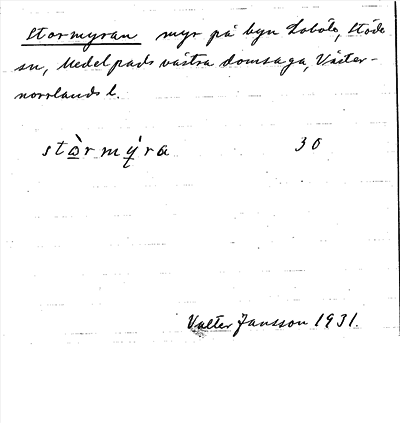 Stormyran myr på byn Loböle, Stöde
sn, Medelpads västra domsaga, Väster-
norrlands l.
stὼrmýra 30
Valter Jansson 1931.